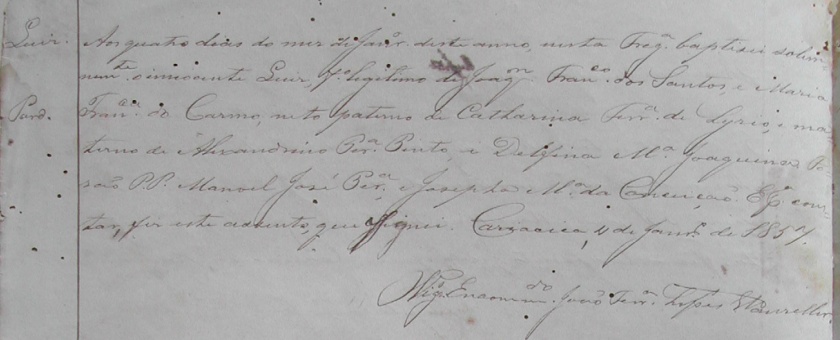 Luiz. Aos quatro dias do mez de Janr.º deste anno, nesta Freg.ª baptizei solem
nem.te o innocente Luiz, f.º legitimo de Joaq.m Fran.co dos Santos, e Maria
Pard. Fran.ca do Carmo, neto paterno de Catharina Ferr.ª de Lyrio, e ma
terno de Alexandrino Per.ª Pinto, e Delfina M.ª Joaquina
são P.P. Manoel José Per.ª, e Josepha M.ª da Conceição. E p.ª cons
tar, fiz este assento, que assignei. Cariacica, 4 de Janr.º de 1857.
O Vig.º Encomm.do João Ferr.ª Lopes